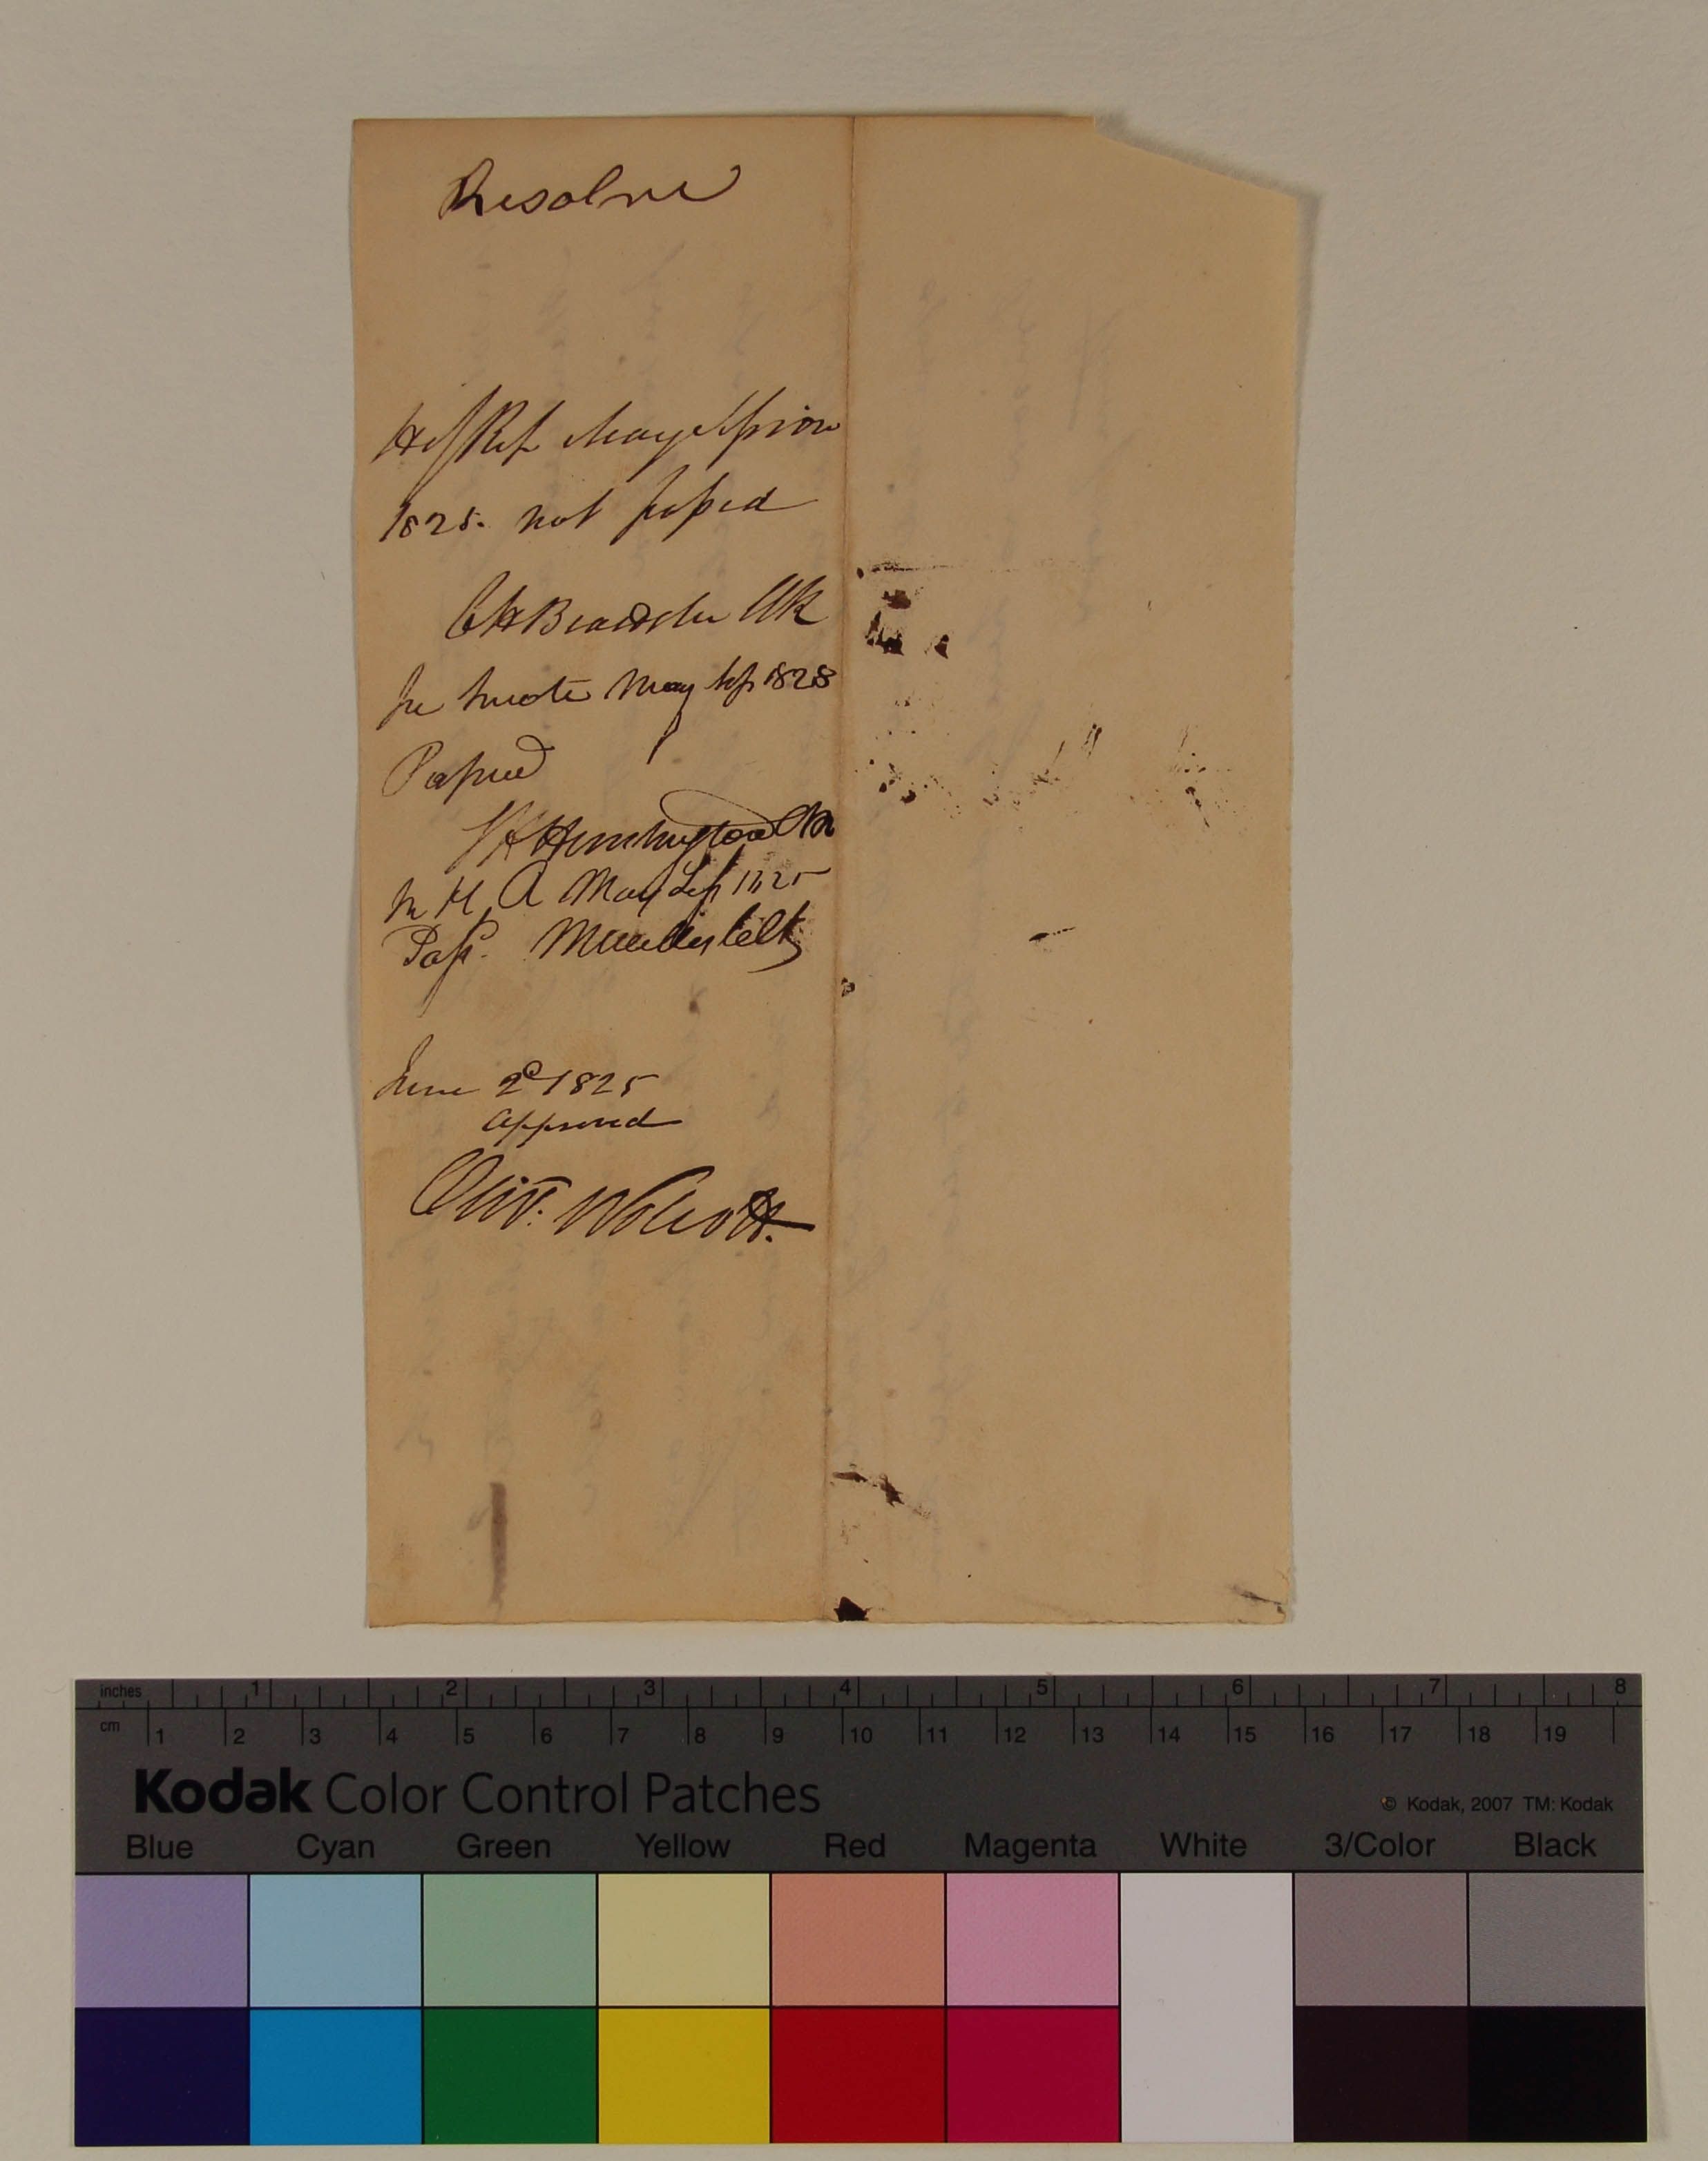 Resolve
H of Rep May Session
1825. not passed
C H Beardslee Clk
In Senate May Ses 1825
Passed
Huntington Clk
In H. R. May Ses 1825
Pass.
June 2d 1825
approved
Oliv: Wolcott.
inches 1 2 3 4 5 6 7 8
cm 1 2 3 4 5 6 7 8 9 10 11 12 13 14 15 16 17 18 19
Kodak Color Control Patches
© Kodak, 2007 TM: Kodak
Blue Cyan Green Yellow Red Magenta White 3/Color Black